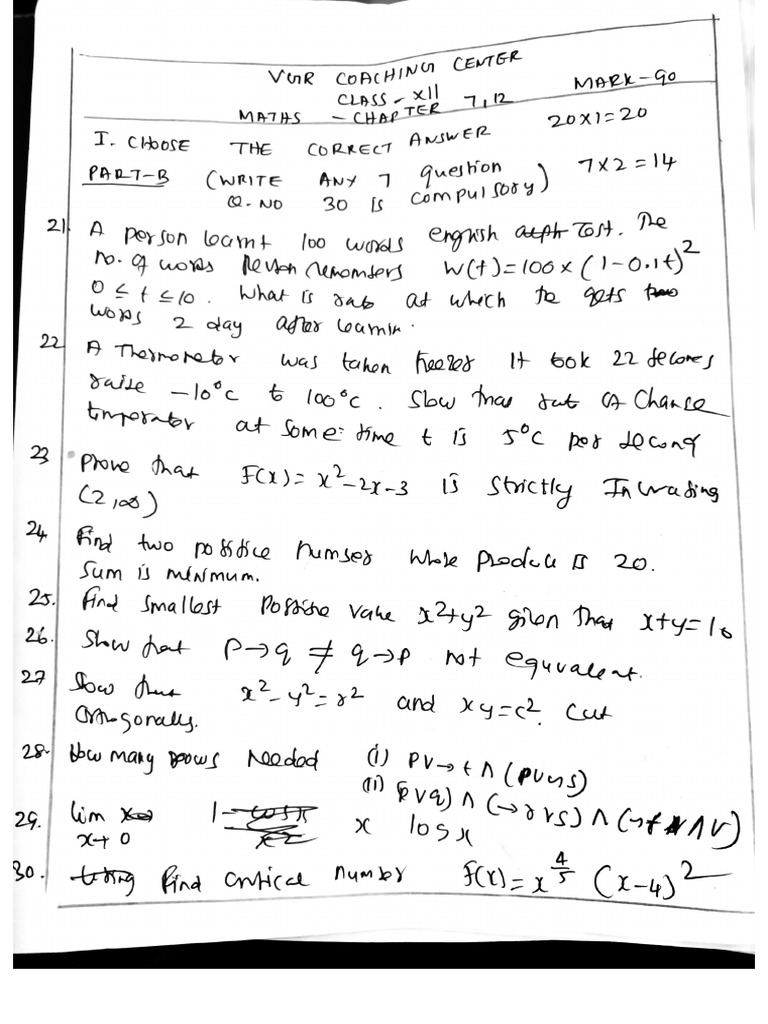 VGR COACHING CENTER
CLASS - XII
MARK - 90
MATHS - CHAPTER 7, 12
I. CHOOSE THE CORRECT ANSWER 20x1=20
PART-B (WRITE ANY 7 question 7x2=14
Q.NO 30 is compulsory)
21. A person learnt 100 words english Test. The
no. of words Person remembers W(t)=100x(1-0.1t)²
0 ≤ t ≤ 10. What is rate at which he gets
words 2 day after learnin.
22. A Thermometer was taken freezer It took 22 Seconds
raise -10°c to 100°c. Show that rate of Change
temperator at some time t is 5°C per second
23 Prove that F(x)= x²-2x-3 is strictly Increasing
(2,∞)
24 Find two positive number whose product is 20.
Sum is minimum.
25. Find smallest positive value x²+y² given that x+y=10
26. Show that P→q ≠ q→p not equivalent.
27 Show that x²-y²=r² and xy=c². cut
Orthogonally.
28. How many rows needed (i) p∨¬t∧(p∨¬s)
(ii)
29. lim x→0 x log x
30. Find critical number F(x)= x^4/5 (x-4)²